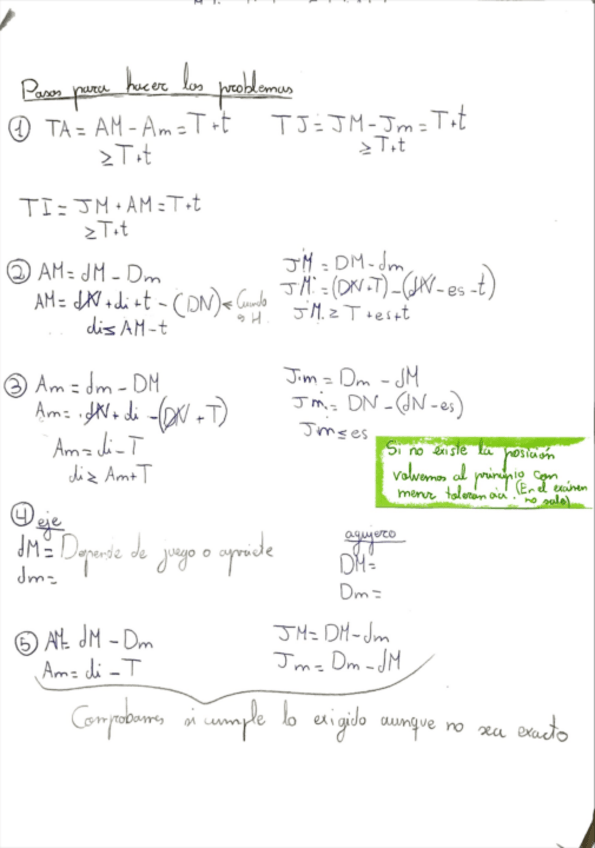 Pasos para hacer los problemas
① TA = AM - Am = T+t TJ = JM - Jm = T+t
≥ T+t ≥ T+t
TI = JM + AM = T+t
≥ T+t
② AM = dM - Dm JM = DM - dm
AM = dN + di + t - (DN) ← Cuando es H. JM = (DN+T) - (dN - es - t)
di ≤ AM - t JM ≥ T + es + t
③ Am = dm - DM Jm = Dm - dM
Am = dN + di - (DN + T) Jm = DN - (dN - es)
Am = di - T Jm ≤ es
di ≥ Am + T
Si no existe la posición
volvemos al principio con
menor tolerancia. (En el exámen no sale)
④ eje agujero
dM = Depende de juego o apriete DM =
dm = Dm =
⑤ AM = dM - Dm JM = DM - dm
Am = di - T Jm = Dm - dM
Comprobamos si cumple lo exigido aunque no sea exacto